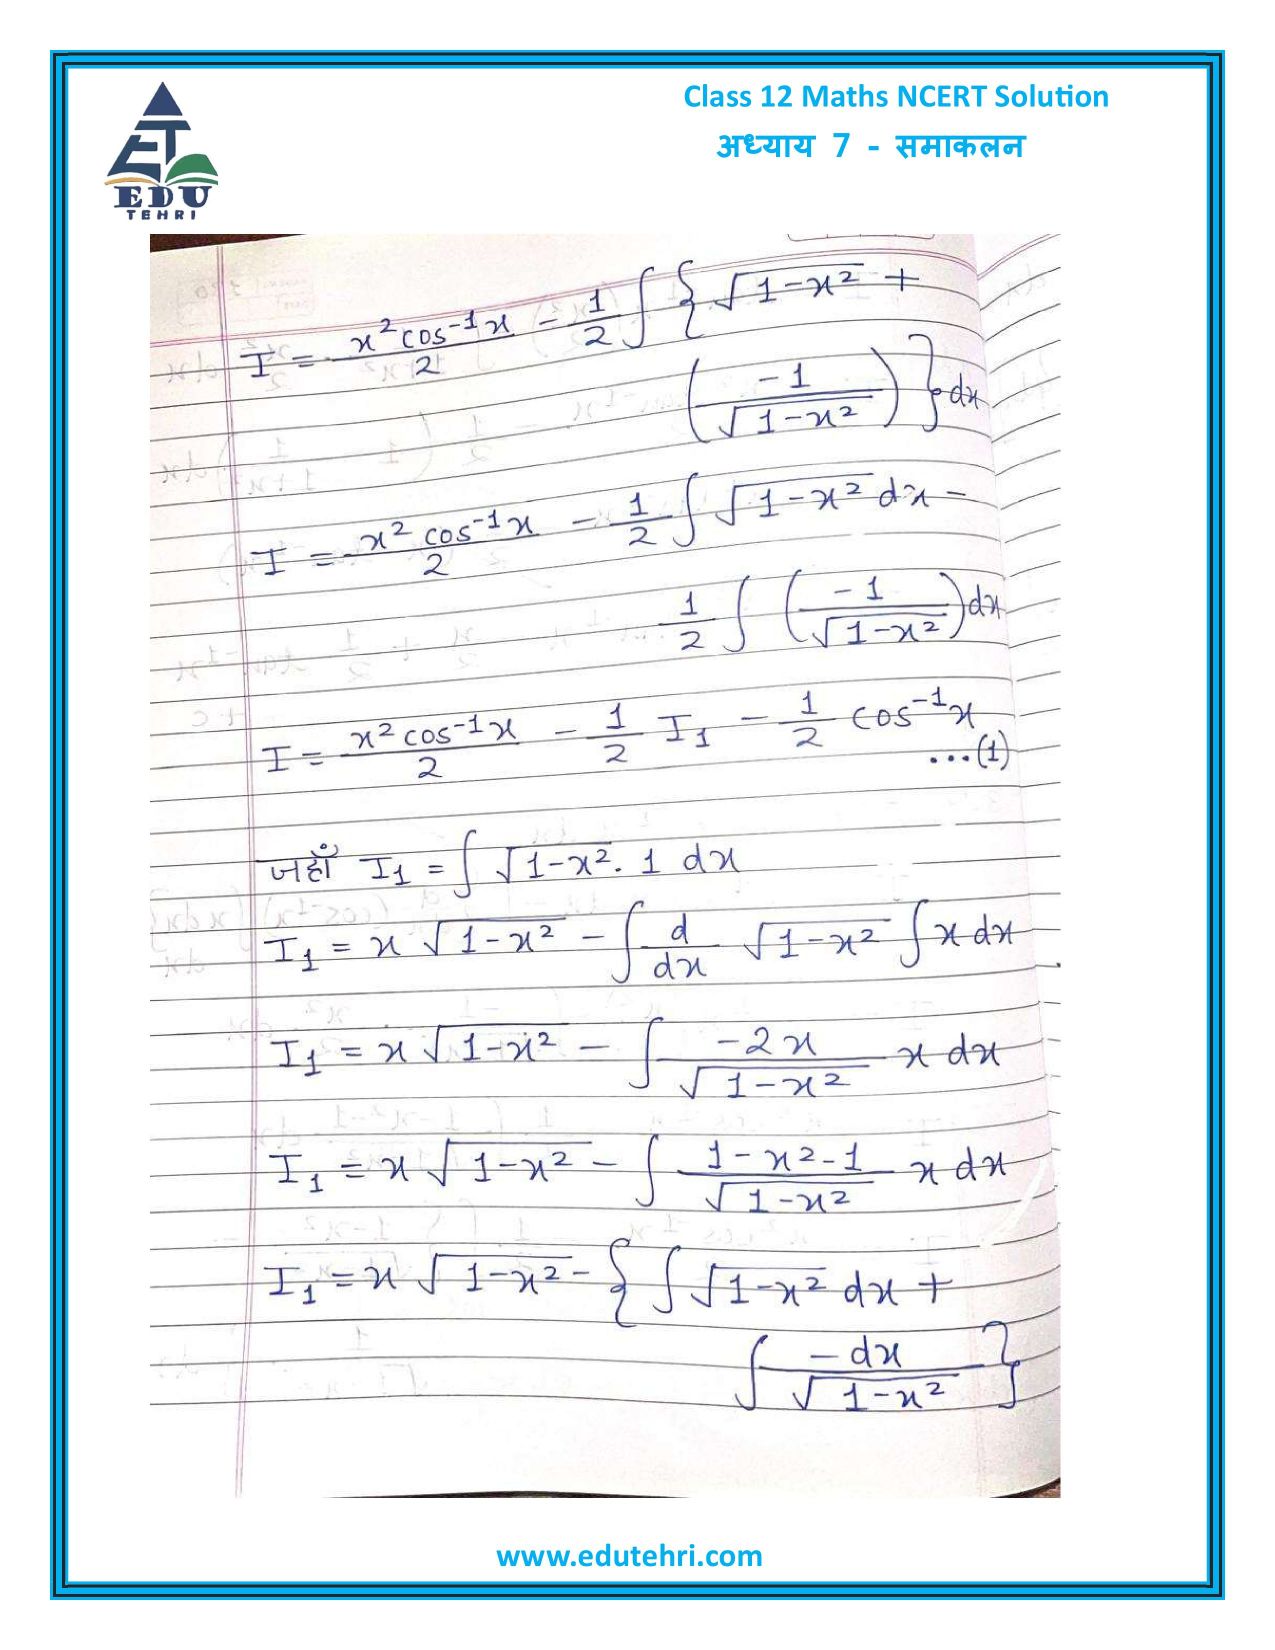 Class 12 Maths NCERT Solution
अध्याय 7 - समाकलन
ET
EDU
TEHRI
I = x² cos⁻¹x / 2 - 1/2 ∫ { √(1-x²) +
( -1 / √(1-x²) ) } dx
I = x² cos⁻¹x / 2 - 1/2 ∫ √(1-x²) dx -
1/2 ∫ ( -1 / √(1-x²) ) dx
I = x² cos⁻¹x / 2 - 1/2 I₁ - 1/2 cos⁻¹x
...(1)
जहाँ I₁ = ∫ √(1-x²) . 1 dx
I₁ = x √(1-x²) - ∫ d/dx √(1-x²) ∫ x dx
I₁ = x √(1-x²) - ∫ -2x / √(1-x²) x dx
I₁ = x √(1-x²) - ∫ (1-x²-1) / √(1-x²) x dx
I₁ = x √(1-x²) - { ∫ √(1-x²) dx +
∫ -dx / √(1-x²) }
www.edutehri.com